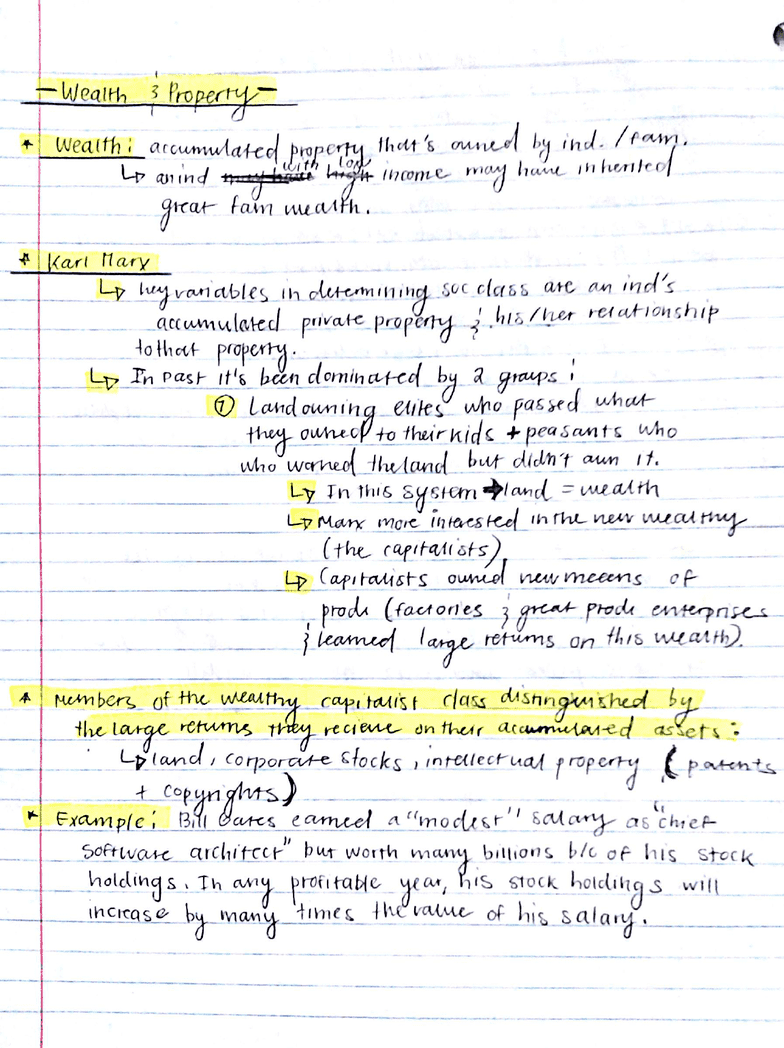 - Wealth & Property -
* Wealth: accumulated property that's owned by ind. / fam.
↳ an ind with low income may have inherited
great fam wealth.
* Karl Marx
↳ key variables in determining soc class are an ind's
accumulated private property & his/her relationship
to that property.
↳ In past it's been dominated by 2 groups:
① Landowning elites who passed what
they owned to their kids + peasants who
who worked the land but didn't own it.
↳ In this system → land = wealth
↳ Marx more interested in the new wealthy
(the capitalists)
↳ Capitalists owned new means of
prod (factories & great prod enterprises
& earned large returns on this wealth).
* Members of the wealthy capitalist class distinguished by
the large returns they recieve on their accumulated assets:
↳ land, corporate stocks, intellectual property (patents
+ copyrights)
* Example: Bill Gates earned a "modest" salary as "chief
software architect" but worth many billions b/c of his stock
holdings. In any profitable year, his stock holdings will
increase by many times the value of his salary.